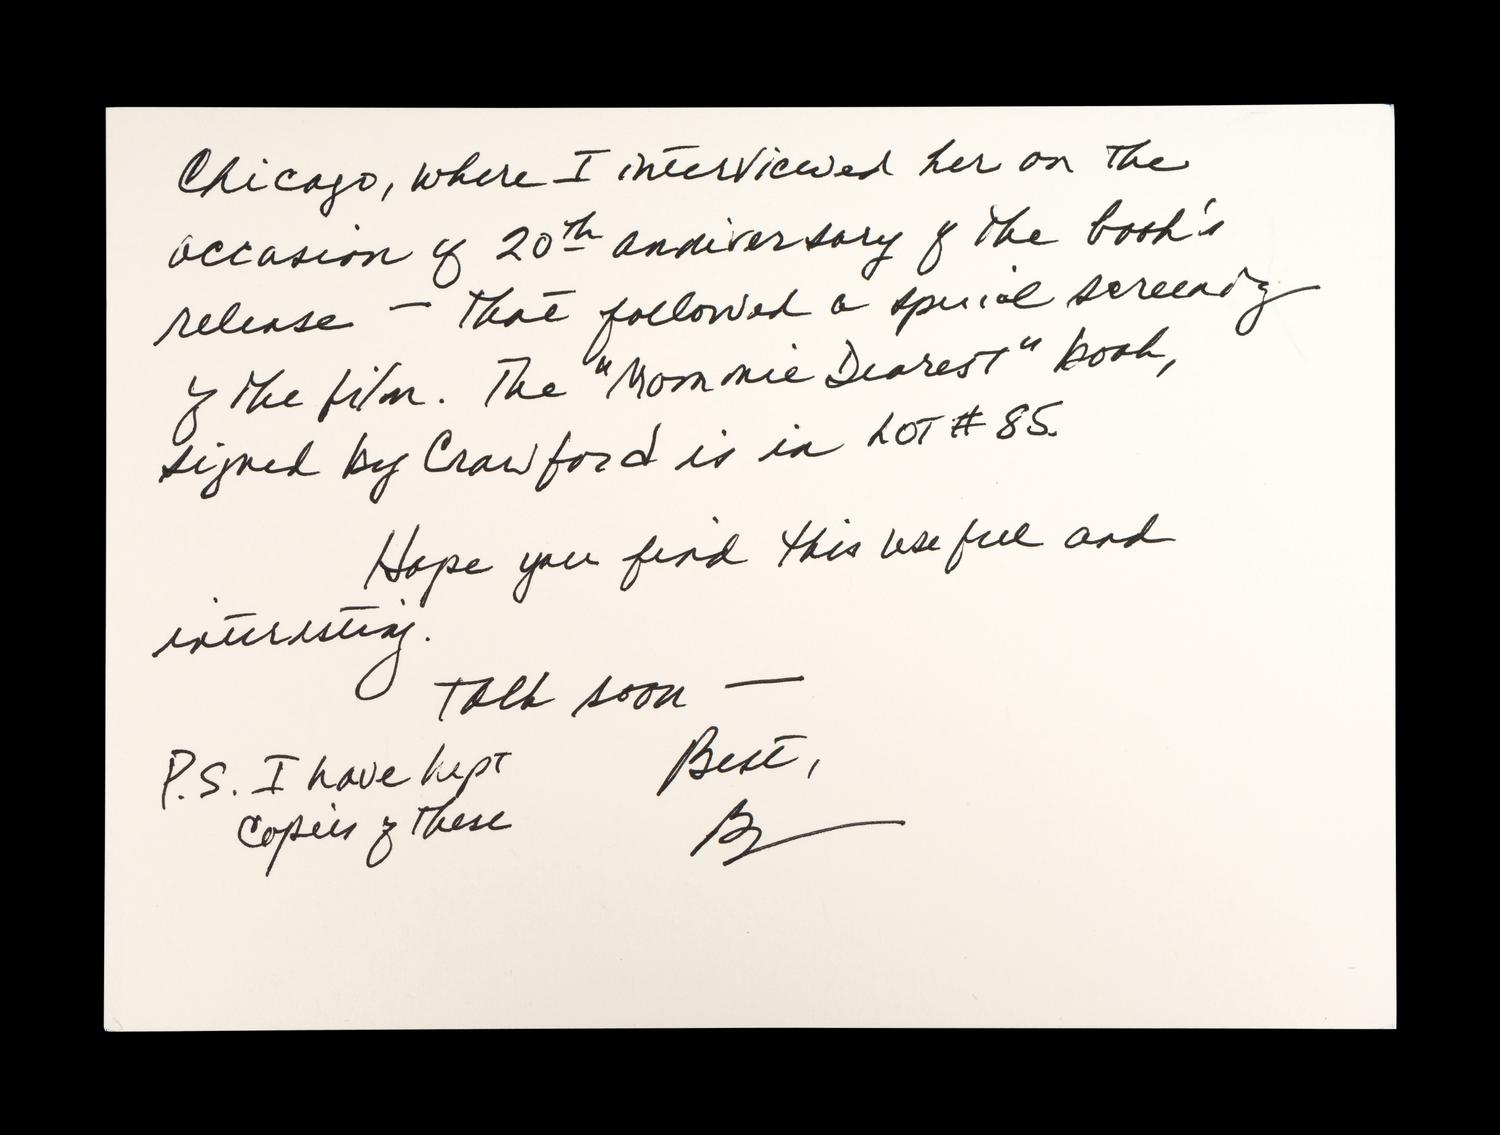 Chicago, where I interviewed her on the
occasion of 20th anniversary of the book's
release — that followed a special screening
of the film. The "Mommie Dearest" book,
signed by Crawford is in LOT # 85.
Hope you find this useful and
interesting.
Talk soon —
Best,
P.S. I have kept
copies of these